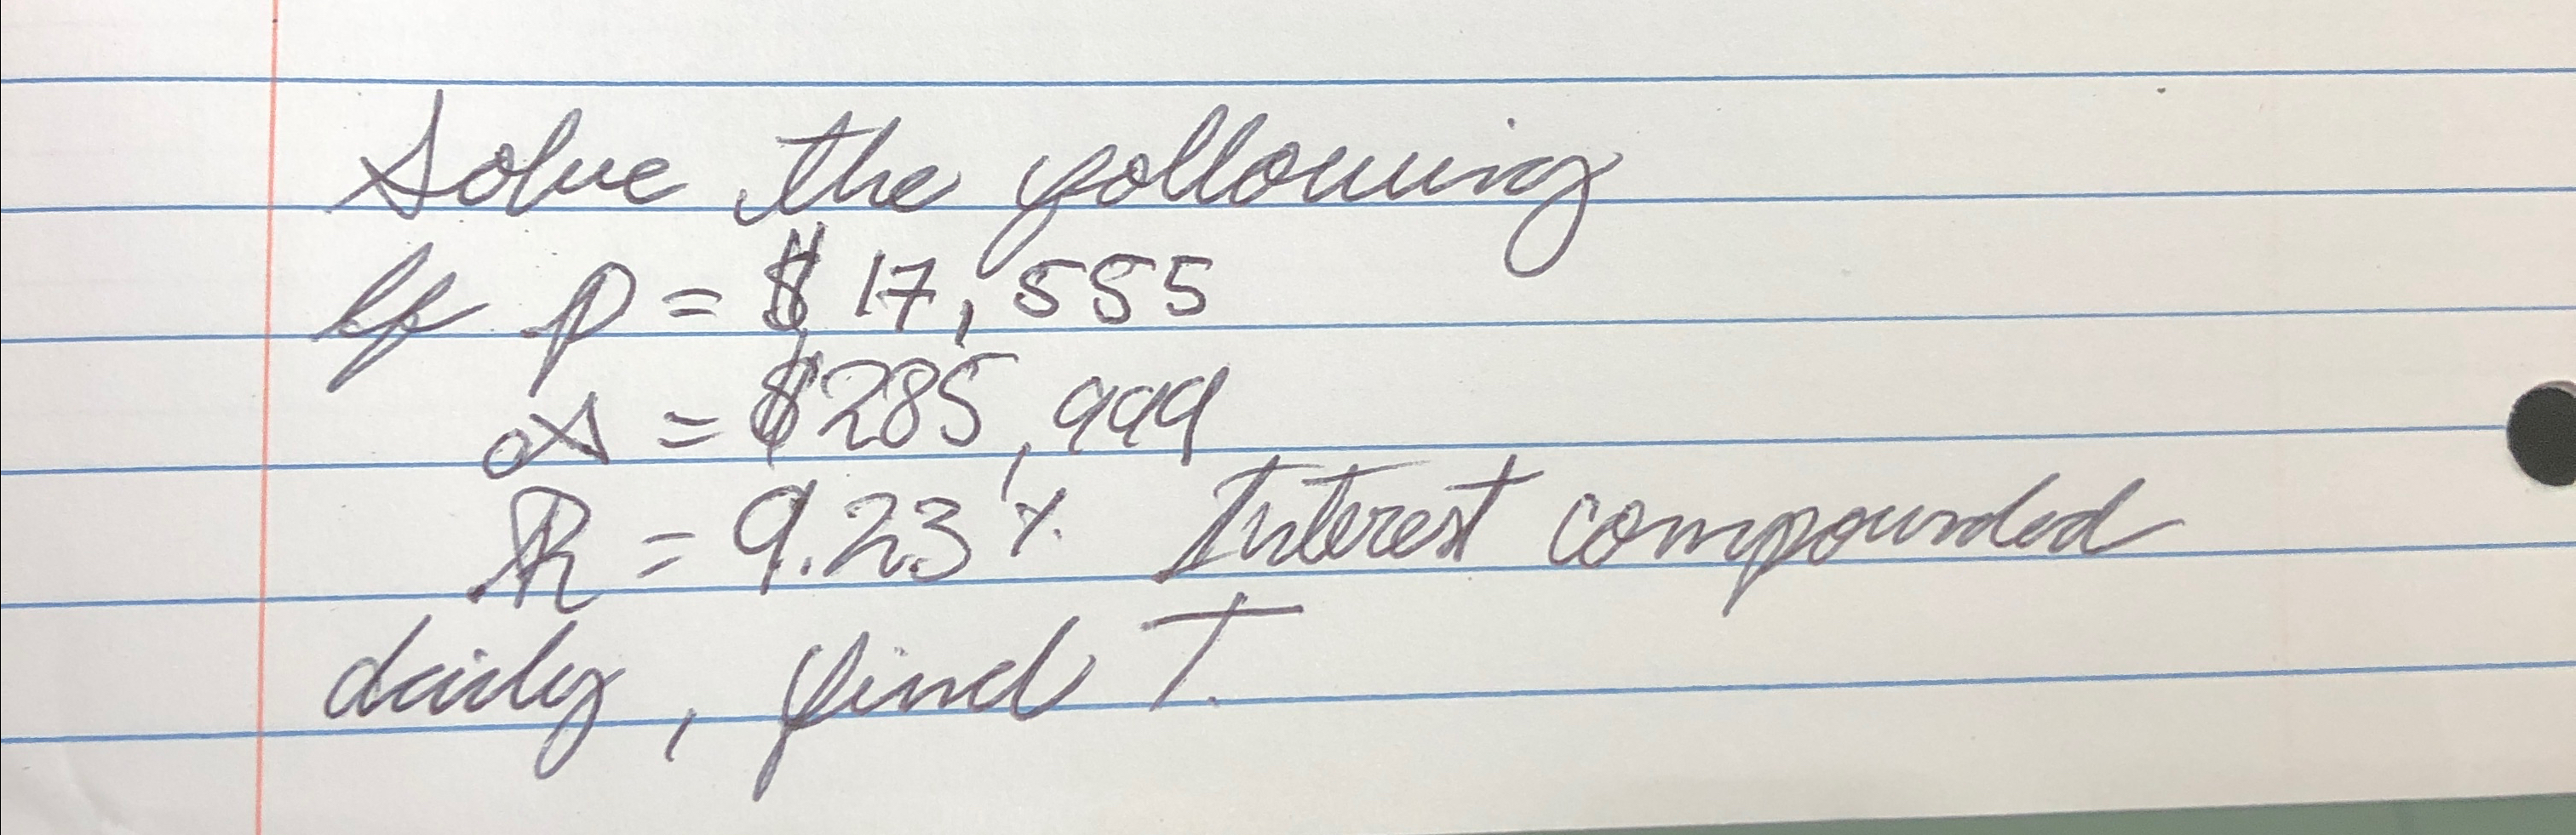 Solve the following
If p = $ 17, 555
A = $285, 999
R = 9.23% Interest compounded
daily, find T.